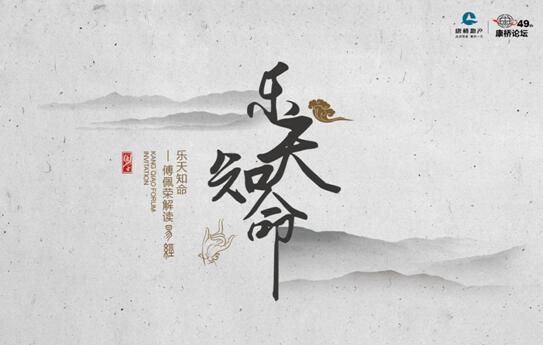 康桥地产
49th
康桥论坛
乐天知命
乐天知命
——傅佩荣解读易經
KANG QIAO FORUM
INVITATION